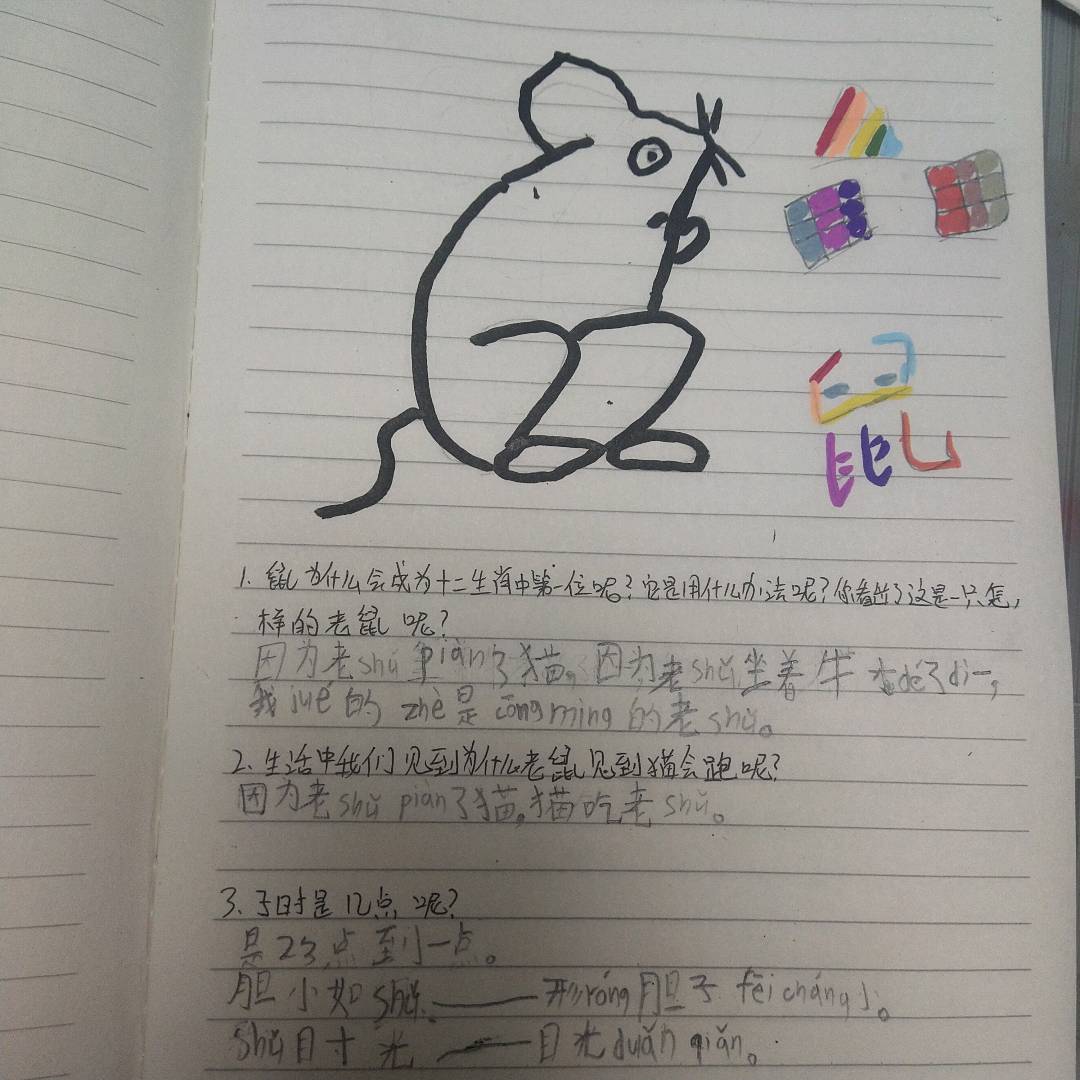 鼠
1. 鼠为什么会成为十二生肖中第一位呢?它是用什么办法呢?你看出了这是一只怎,
样的老鼠呢?
因为老shǔ piàn了猫。因为老shǔ坐着牛 dé了dì一,
我jué的zhè是cōng ming的老shǔ。
2. 生活中我们见到为什么老鼠见到猫会跑呢?
因为老shǔ piàn了猫,猫吃老shǔ。
3. 子时是几点呢?
是23点到一点。
胆小如shǔ——形róng胆子fēi cháng小。
Shǔ目寸光——目光duǎn qiǎn。